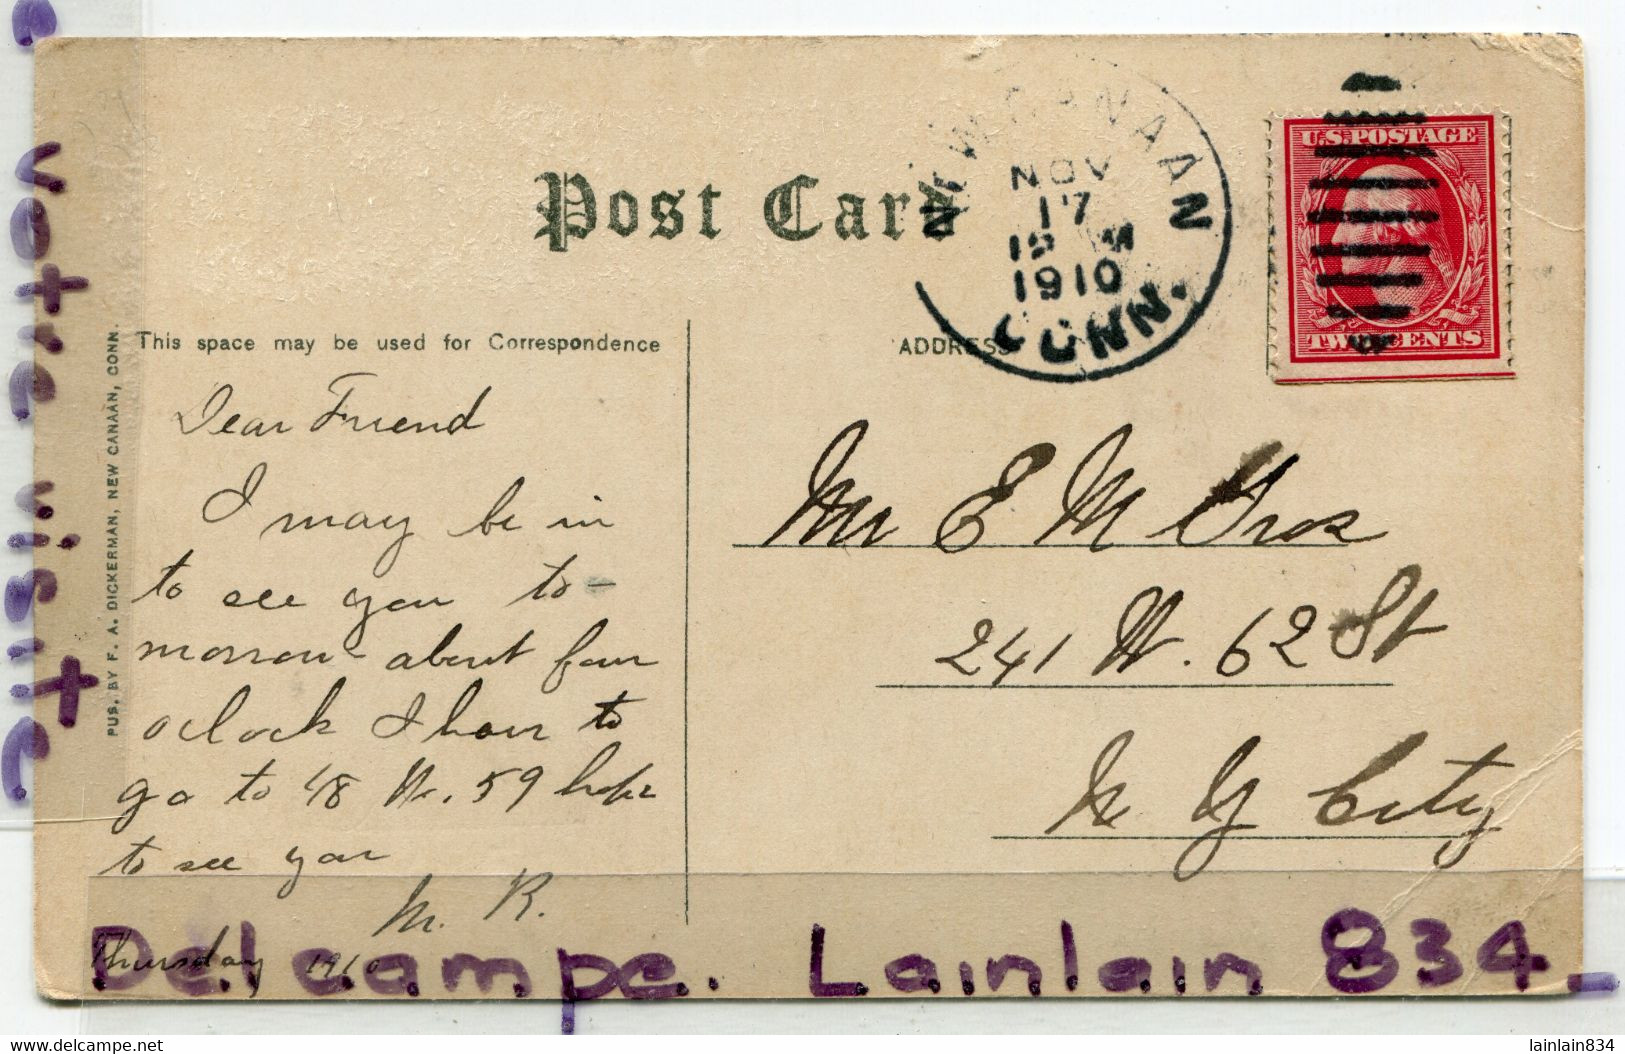 Post Card
NEW CANAAN
NOV
17
1910
CONN.
U.S. POSTAGE
TWO CENTS
This space may be used for Correspondence
ADDRESS
PUB. BY F. A. DICKERMAN, NEW CANAAN, CONN.
votre visite
Dear Friend
I may be in
to see you to-
morrow about four
oclock I have to
go to 48 W. 59 hope
to see you
M. R.
Thursday 1910
Mr E M Gros
241 W. 62 St
N Y City
Delcampe. Lainlain 834
www.delcampe.net
lainlain834